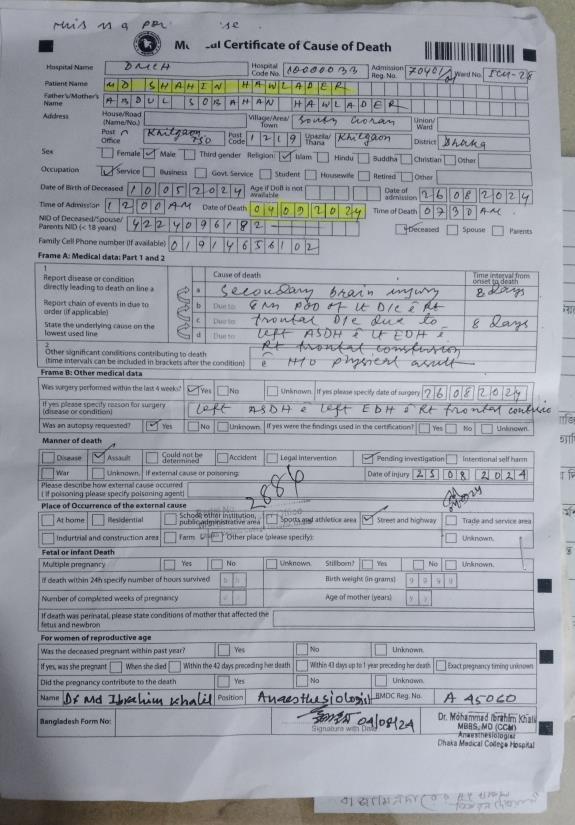 This is a
Medical Certificate of Cause of Death
Hospital Name DMCH Hospital Code No. 10000033 Admission Reg. No. 7040/ Ward No. ICU-28
Patient Name MD SHAHIN HAWLADER
Father's/Mother's Name ABDUL SOBAHAN HAWLADER
Address House/Road (Name/No.) Village/Area/Town South Goran Union/Ward
Post Office Khilgaon Post Code 1219 Upazila/Thana Khilgaon District Dhaka
Sex Female Male Third gender Religion Islam Hindu Buddha Christian Other
Occupation Service Business Govt. Service Student Housewife Retired Other
Date of Birth of Deceased 10052024 Age if DoB is not available Date of admission 26082024
Time of Admission 1200 AM Date of Death 04092024 Time of Death 0730 AM
NID of Deceased/Spouse/Parents NID (< 18 years) 4224096182 Deceased Spouse Parents
Family Cell Phone number (If available) 01914656102
Frame A: Medical data: Part 1 and 2
1 Cause of death Time interval from onset to death
Report disease or condition directly leading to death on line a a Secondary brain injury 8 days
Report chain of events in due to order (if applicable) b Due to: 8th POD of Lt D/C & Rt
c Due to: frontal D/C due to 8 days
State the underlying cause on the lowest used line d Due to: left ASDH & Lt EDH &
2 Rt frontal contusion
Other significant conditions contributing to death (time intervals can be included in brackets after the condition) & H/O physical assult
Frame B: Other medical data
Was surgery performed within the last 4 weeks? Yes No Unknown. If yes please specify date of surgery 26082024
If yes please specify reason for surgery (disease or condition) left ASDH & left EDH & Rt frontal
Was an autopsy requested? Yes No Unknown. If yes were the findings used in the certification? Yes No Unknown.
Manner of death
Disease Assault Could not be determined Accident Legal intervention Pending investigation Intentional self harm
War Unknown. If external cause or poisoning: Date of injury 25 08 2024
Please describe how external cause occurred (If poisoning please specify poisoning agent) 2886
Place of Occurrence of the external cause
At home Residential School, other institution, public administrative area Sports and athletica area Street and highway Trade and service area
Indurtrial and construction area Farm Other place (please specify): Unknown.
Fetal or infant Death
Multiple pregnancy Yes No Unknown Stillborn? Yes No Unknown.
If death within 24h specify number of hours survived Birth weight (in grams)
Number of completed weeks of pregnancy Age of mother (years)
If death was perinatal, please state conditions of mother that affected the fetus and newbron
For women of reproductive age
Was the deceased pregnant within past year? Yes No Unknown.
If yes, was she pregnant When she died Within the 42 days preceding her death Within 43 days up to 1 year preceding her death Exact pregnancy timing unknown
Did the pregnancy contribute to the death Yes No Unknown.
Name Dr Md Ibrahim Khalil Position Anaesthesiologist BMDC Reg. No. A 45060
Bangladesh Form No: 04/08/24 Signature with Date
Dr. Mohammad Ibrahim Khalil
MBBS, MD (CCM)
Anaesthesiologist
Dhaka Medical College Hospital